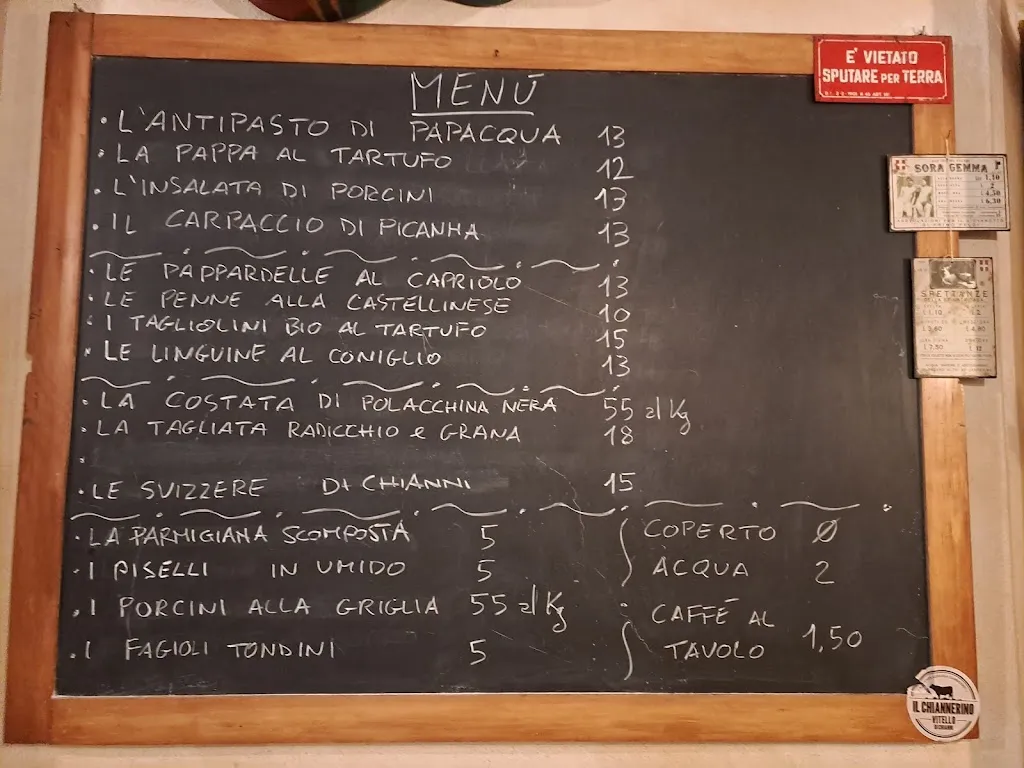 MENÚ
· L'ANTIPASTO DI PAPACQUA 13
· LA PAPPA AL TARTUFO 12
· L'INSALATA DI PORCINI 13
· IL CARPACCIO DI PICANHA 13
· LE PAPPARDELLE AL CAPRIOLO 13
· LE PENNE ALLA CASTELLINESE 10
· I TAGLIOLINI BIO AL TARTUFO 15
· LE LINGUINE AL CONIGLIO 13
· LA COSTATA DI POLACCHINA NERA 55 al Kg
· LA TAGLIATA RADICCHIO e GRANA 18
· LE SVIZZERE DI CHIANNI 15
· LA PARMIGIANA SCOMPOSTA 5
· I PISELLI IN UMIDO 5
· I PORCINI ALLA GRIGLIA 55 al Kg
· I FAGIOLI TONDINI 5
COPERTO Ø
ACQUA 2
CAFFÉ AL
TAVOLO 1,50
E' VIETATO
SPUTARE PER TERRA
SORA GEMMA
1,10
2
4,30
6,30
IL CHIANNERINO
VITELLO
DI CHIANNI